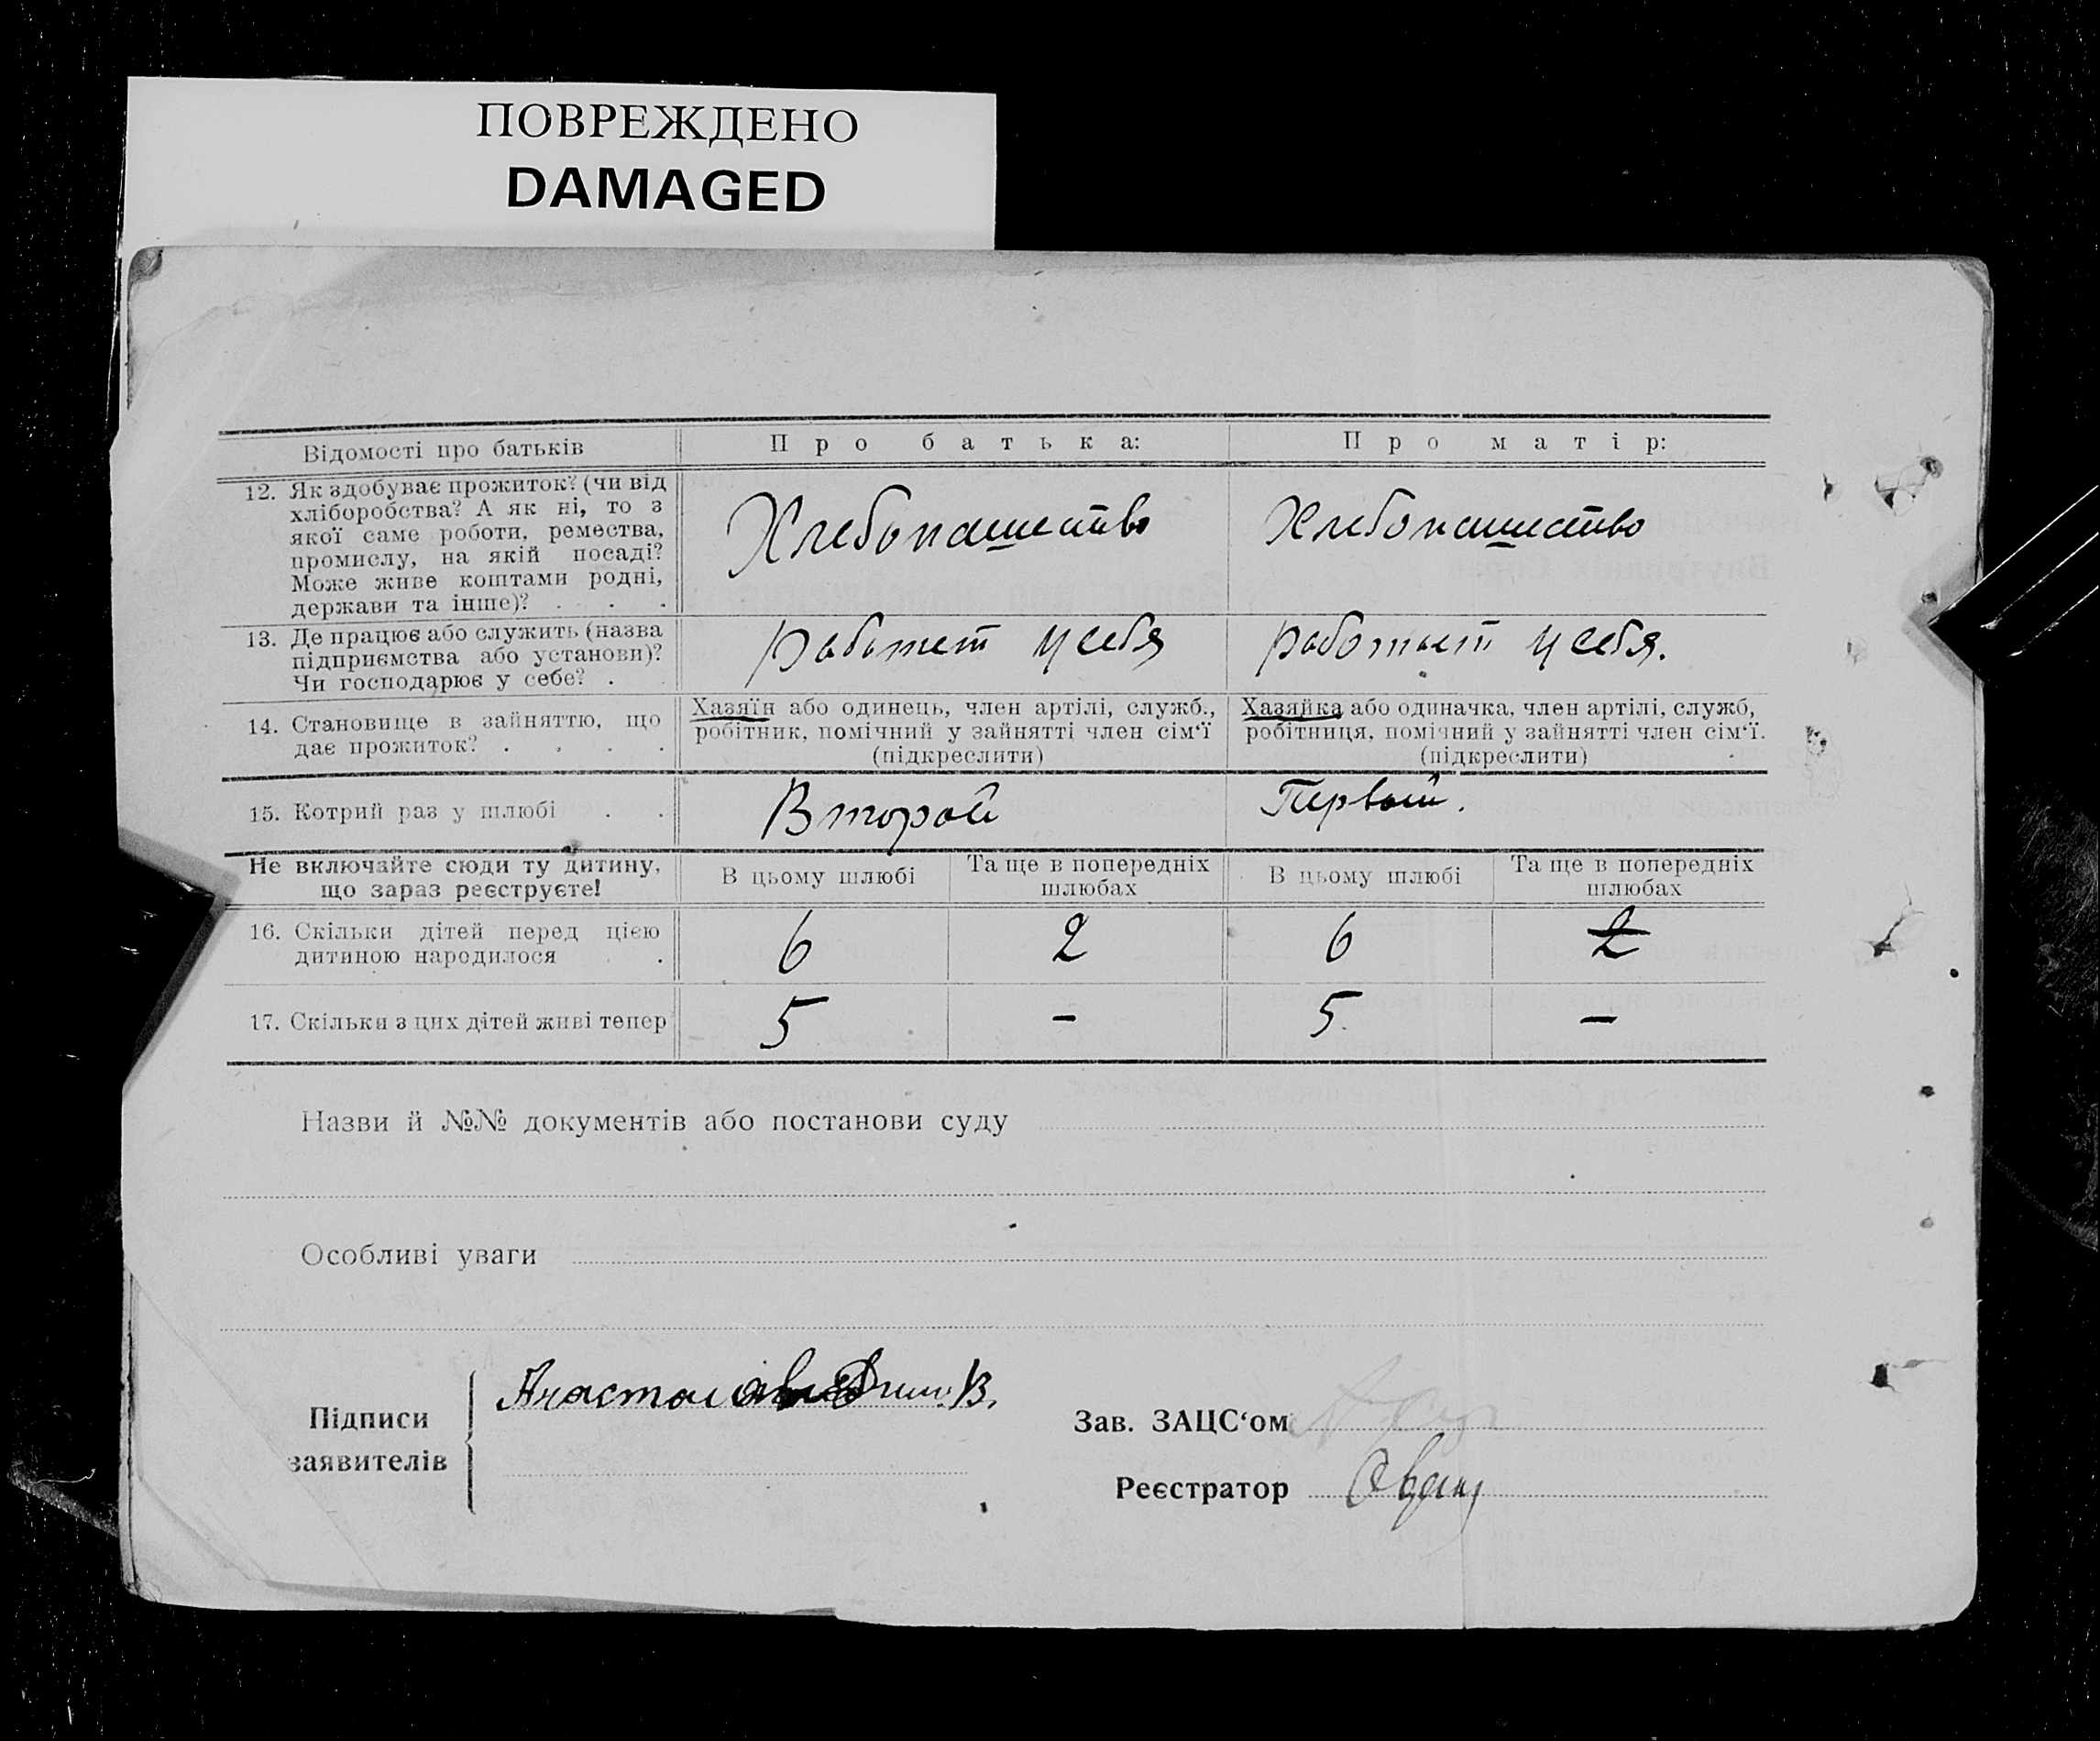 ПОВРЕЖДЕНО
DAMAGED
Відомості про батьків
Про батька:
Про матір:
12. Як здобуває прожиток? (чи від
хліборобства? А як ні, то з
якої саме роботи, ремества,
промислу, на якій посаді?
Може живе коштами родні,
держави та інше)? . . .
Хлебопашество
Хлебопашество
13. Де працює або служить (назва
підприємства або установи)?
Чи господарює у себе? .
Работает у себя
работает у себя.
14. Становище в зайняттю, що
дає прожиток? . . . .
Хазяїн або одинець, член артілі, служб.,
робітник, помічний у зайнятті член сім‘ї
(підкреслити)
Хазяйка або одиначка, член артілі, служб,
робітниця, помічний у зайнятті член сім‘ї.
(підкреслити)
15. Котрий раз у шлюбі . .
Второй
Первый.
Не включайте сюди ту дитину,
що зараз реєструєте!
В цьому шлюбі
Та ще в попередніх
шлюбах
В цьому шлюбі
Та ще в попередніх
шлюбах
16. Скільки дітей перед цією
дитиною народилося . .
6 2 6 2
17. Скільки з цих дітей живі тепер
5 – 5. –
Назви й №№ документів або постанови суду
Особливі уваги
Підписи
заявителів
В.
Зав. ЗАЦС‘ом
Реєстратор